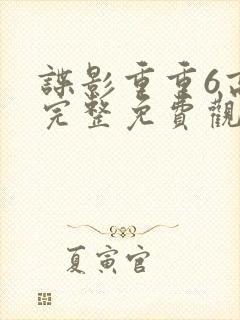 諜影重重6高
完整免費觀
夏寅官